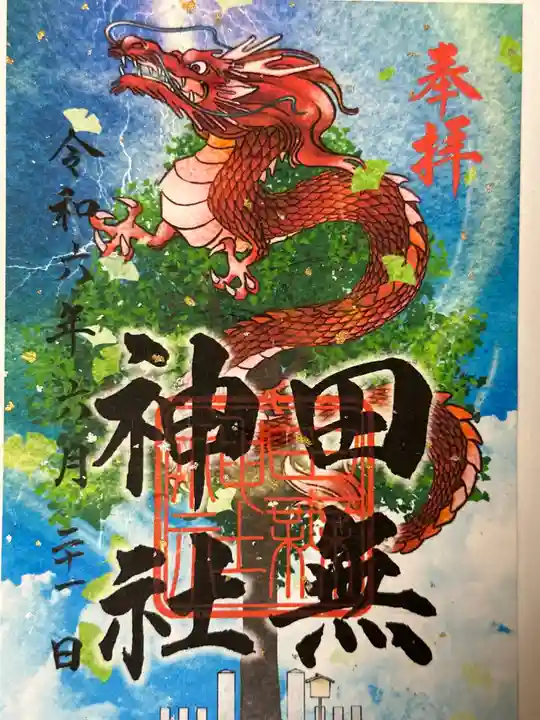 奉拝
田無
神社
令和六年六月二十一日